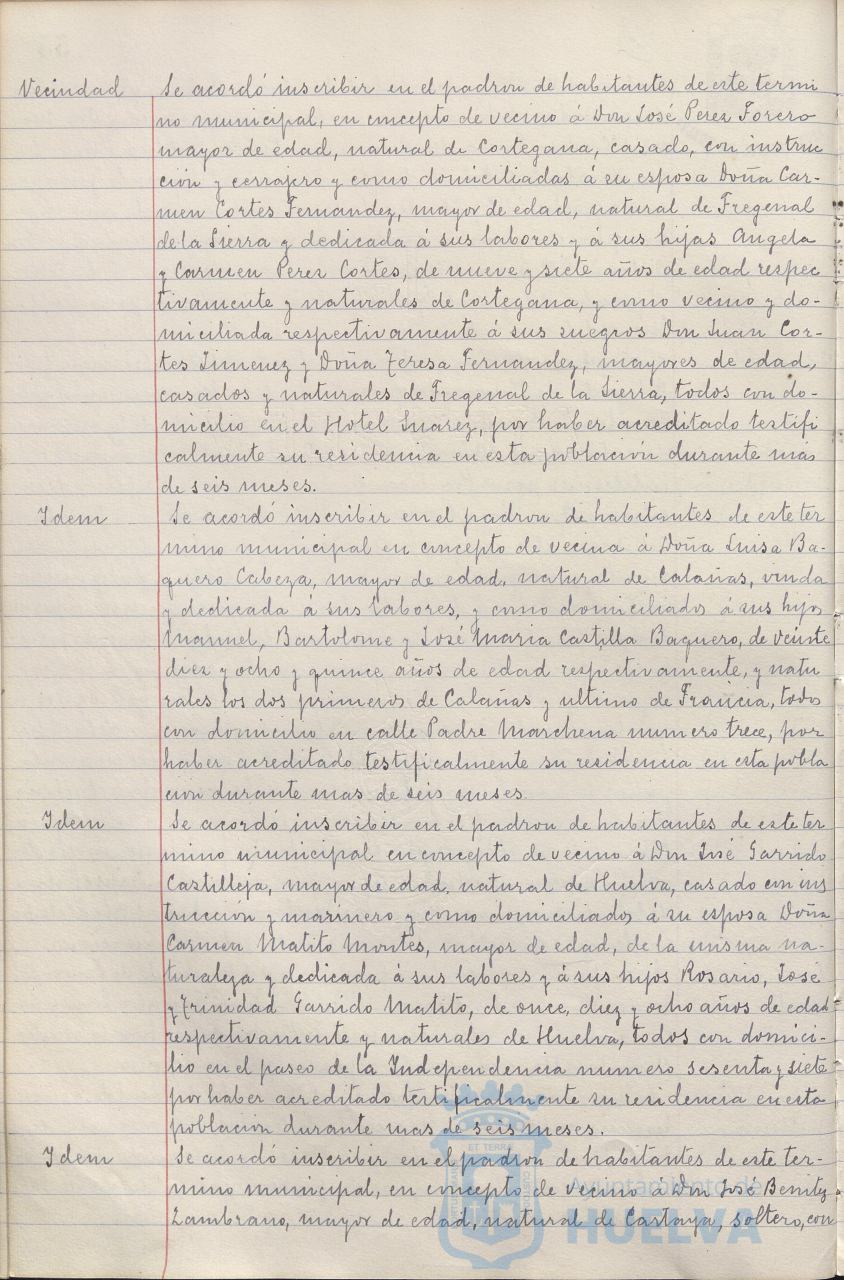 Vecindad Se acordó inscribir en el padron de habitantes de este termi
no municipal, en concepto de vecino á Don José Perez Forero
mayor de edad, natural de Cortegana, casado, con instruc
ción y cerrajero y como domiciliadas á su esposa Doña Car-
men Cortes Fernandez, mayor de edad, natural de Fregenal
de la Sierra y dedicada á sus labores y á sus hijas Angela
y Carmen Perez Cortes, de nueve y siete años de edad respec
tivamente y naturales de Cortegana, y como vecino y do-
miciliada respectivamente á sus suegros Don Juan Cor-
tes Jimenez y Doña Teresa Fernandez, mayores de edad,
casados y naturales de Fregenal de la Sierra, todos con do-
micilio en el Hotel Suarez, por haber acreditado testifi
calmente su residencia en esta población durante más
de seis meses.
Idem Se acordó inscribir en el padron de habitantes de este ter
mino municipal en concepto de vecina á Doña Luisa Ba-
quero Cabeza, mayor de edad, natural de Calañas, viuda
y dedicada á sus labores, y como domiciliados á sus hijos
Manuel, Bartolome y José Maria Castilla Baquero, de veinte
diez y ocho y quince años de edad respectivamente, y natu
rales los dos primeros de Calañas y ultimo de Francia, todos
con domicilio en calle Padre Marchena numero trece, por
haber acreditado testificalmente su residencia en esta pobla
ción durante mas de seis meses.
Idem Se acordó inscribir en el padron de habitantes de este ter
mino municipal en concepto de vecino á Don José Garrido
Castilleja, mayor de edad, natural de Huelva, casado con ins
trucción y marinero y como domiciliados á su esposa Doña
Carmen Matito Montes, mayor de edad, de la misma na-
turaleza y dedicada á sus labores y á sus hijos Rosario, José
y Trinidad Garrido Matito, de once, diez y ocho años de edad
respectivamente y naturales de Huelva, todos con domici-
lio en el paseo de la Independencia numero sesenta y siete
por haber acreditado testificalmente su residencia en esta
población durante mas de seis meses.
Idem Se acordó inscribir en el padron de habitantes de este ter-
mino municipal, en concepto de vecino á Don José Benitez
Zambrano, mayor de edad, natural de Cartaya, soltero, con
Ayuntamiento de
HUELVA